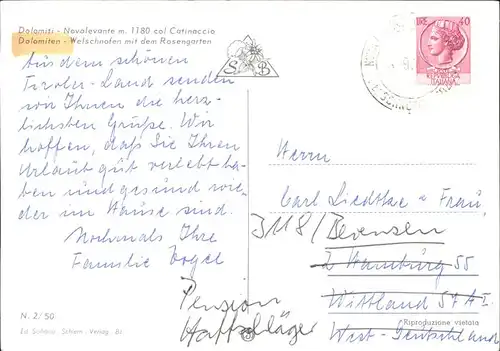 Dolomiti - Novalevante m. 1180 col Catinaccio
Dolomiten - Welschnofen mit dem Rosengarten
Aus dem schönen
Tiroler-Land senden
wir Ihnen die herz-
lichsten Grüße. Wir
hoffen, daß Sie Ihren
Urlaub gut verlebt ha-
ben und gesund wie-
der im Hause sind.
Nochmals Ihre
Familie Vogel
N. 2/50
S B
LIRE 40
ITALIANE
Herrn
Carl Liedtke u Frau,
3118/Bevensen
2 Hamburg 55
Wittland 57 A I
West-Deutschland
Pension
Haffschläger
Riproduzione vietata